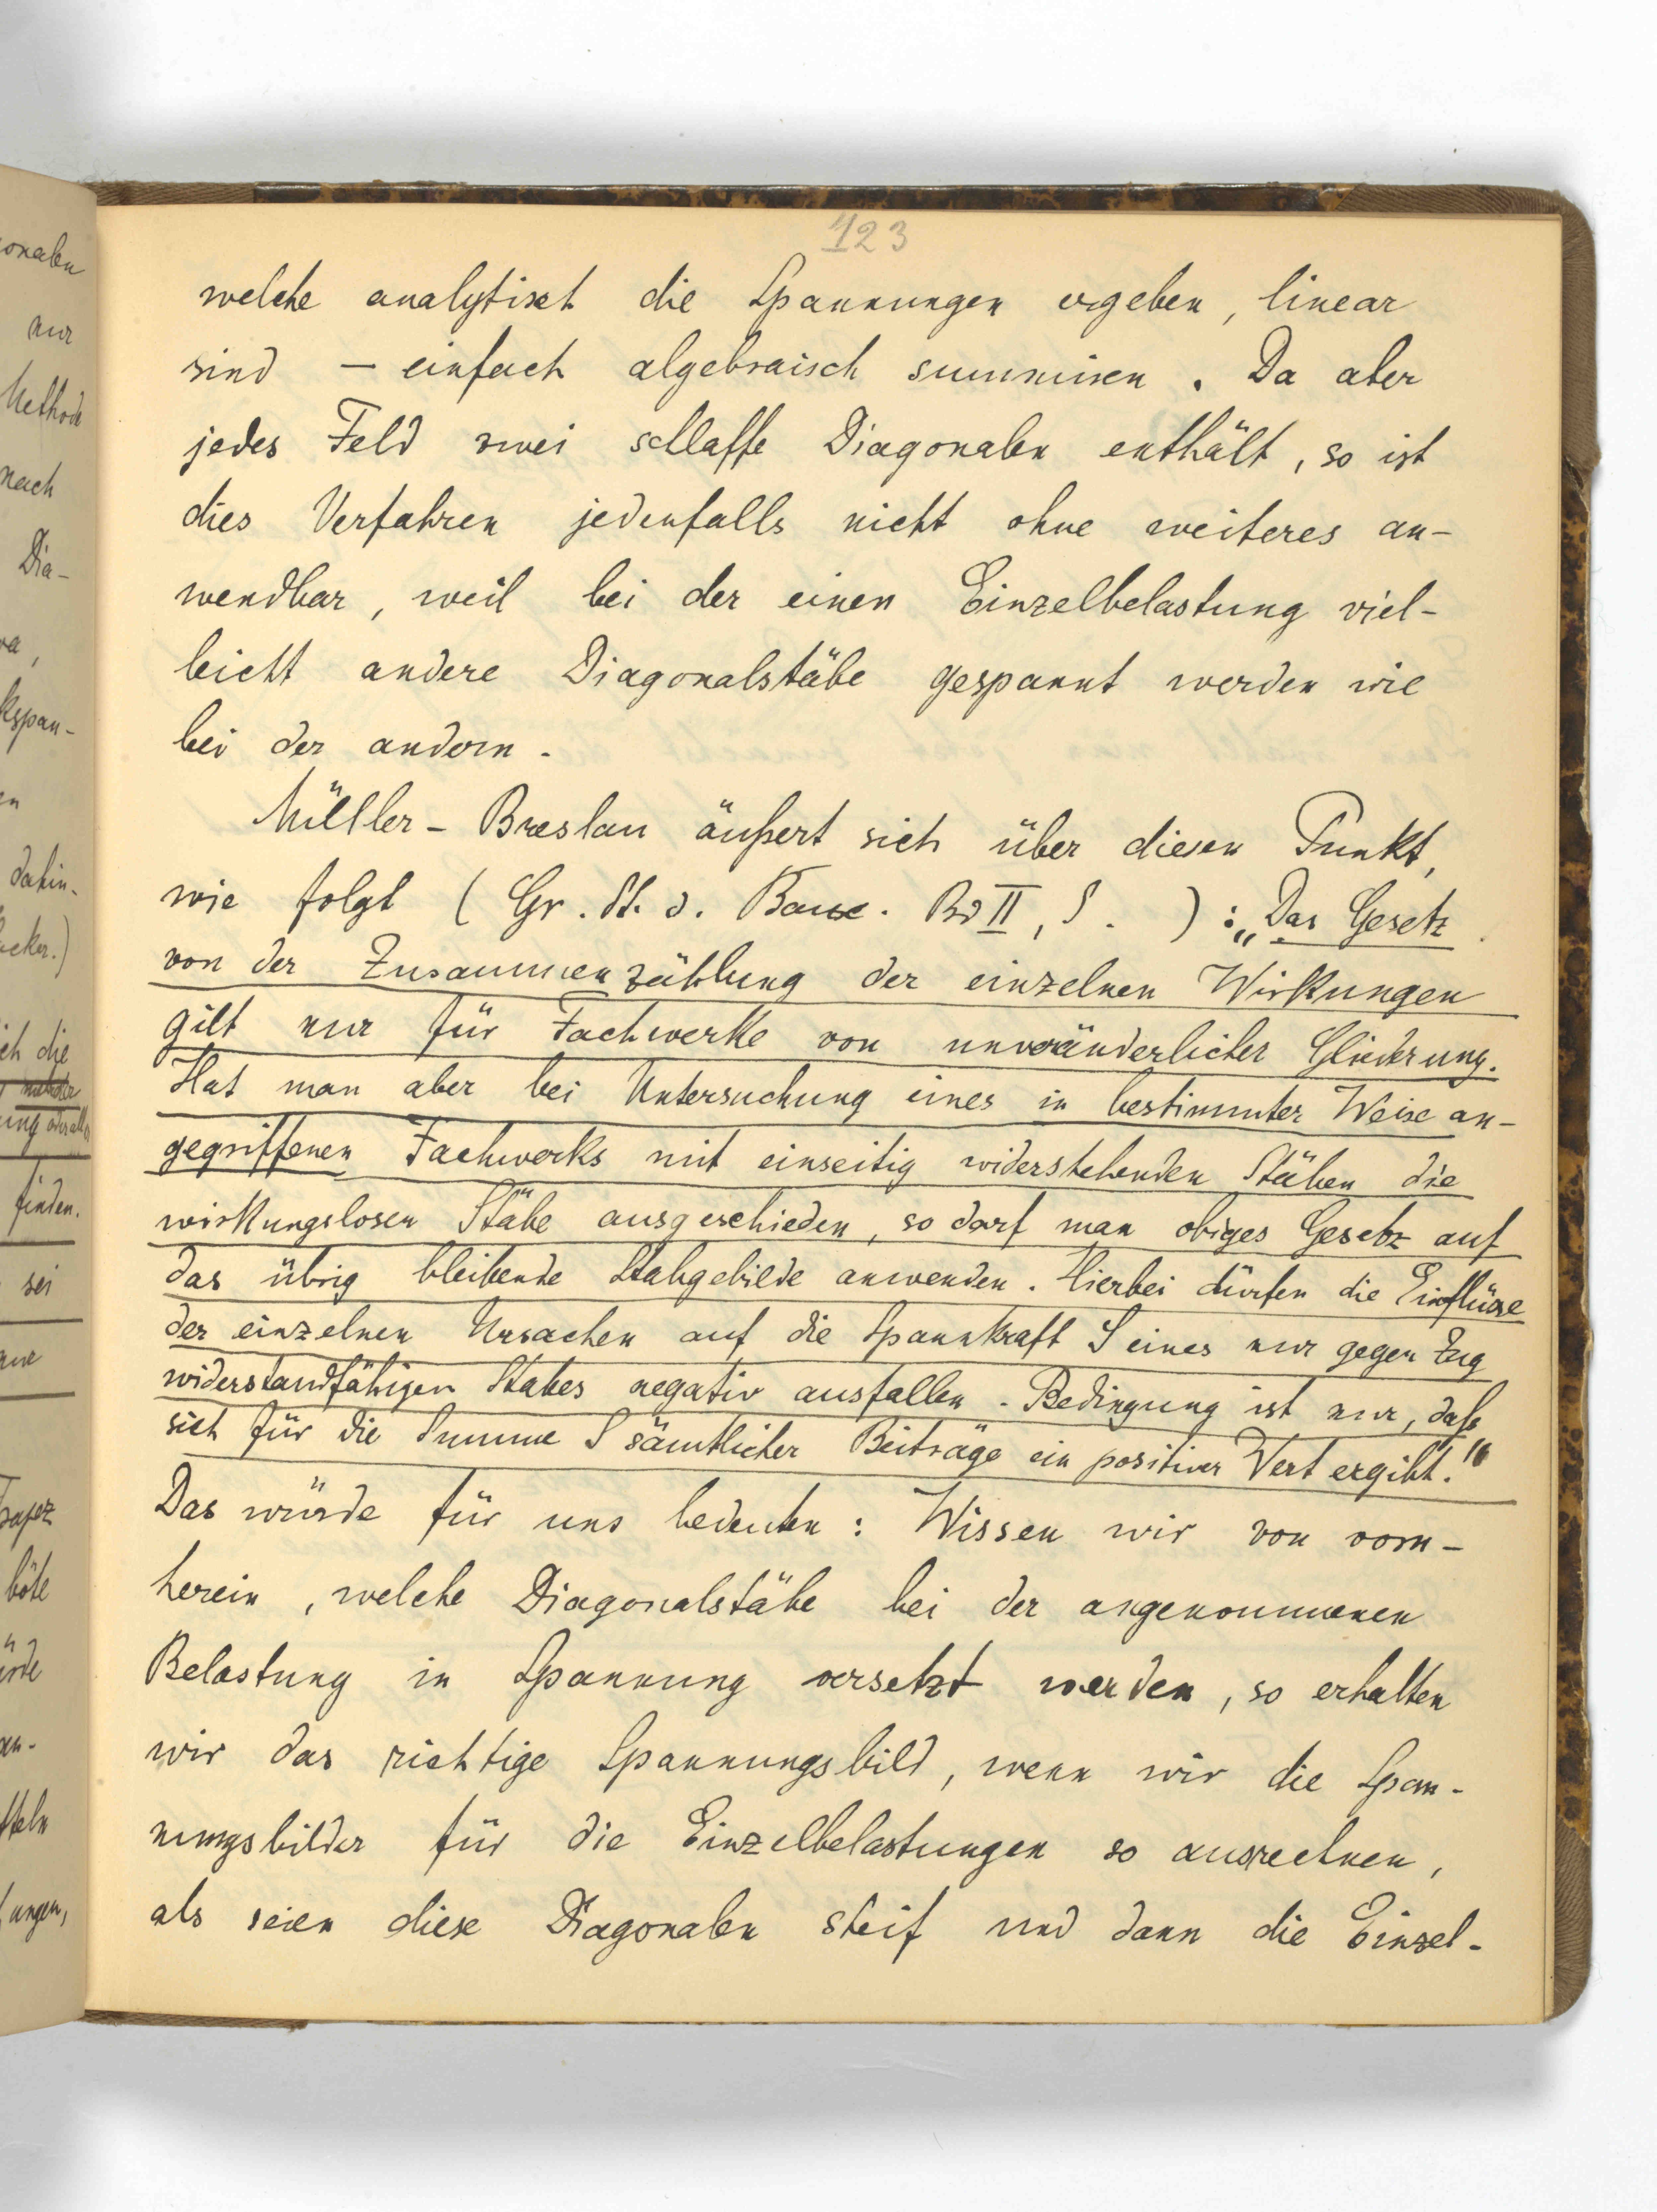 123
welche analytisch die Spannungen ergeben, linear
sind – einfach algebraisch summiren. Da aber
jedes Feld zwei schlaffe Diagonalen enthält, so ist
dies Verfahren jedenfalls nicht ohne weiteres an-
wendbar, weil bei der einen Einzelbelastung viel-
leicht andere Diagonalstäbe gespannt werden wie
bei der andern.
Müller-Breslau äußert sich über diesen Punkt,
wie folgt (Gr. St. d. Bauk. Bd II, S. ): „Das Gesetz
von der Zusammenzählung der einzelnen Wirkungen
gilt nur für Fachwerke von unveränderlicher Gliederung.
Hat man aber bei Untersuchung eines in bestimmter Weise an-
gegriffenen Fachwerks mit einseitig widerstehenden Stäben die
wirkungslosen Stäbe ausgeschieden, so darf man obiges Gesetz auf
das übrig bleibende Stabgebilde anwenden. Hierbei dürfen die Einflüsse
der einzelnen Ursachen auf die Spannkraft S eines nur gegen Zug
widerstandfähigen Stabes negativ ausfallen. Bedingung ist nur, daß
sich für die Summe S sämtlicher Beiträge ein positiver Wert ergibt."
Das würde für uns bedeuten: Wissen wir von vorn-
herein, welche Diagonalstäbe bei der angenommenen
Belastung in Spannung versetzt werden, so erhalten
wir das richtige Spannungsbild, wenn wir die Span-
nungsbilder für die Einzelbelastungen so ausrechnen,
als seien diese Diagonalen steif und dann die Einzel-
onalen
nur
Methode
nach
Dia-
dahin-
ich die
finden.
sei
Trapez
böte
ungen,